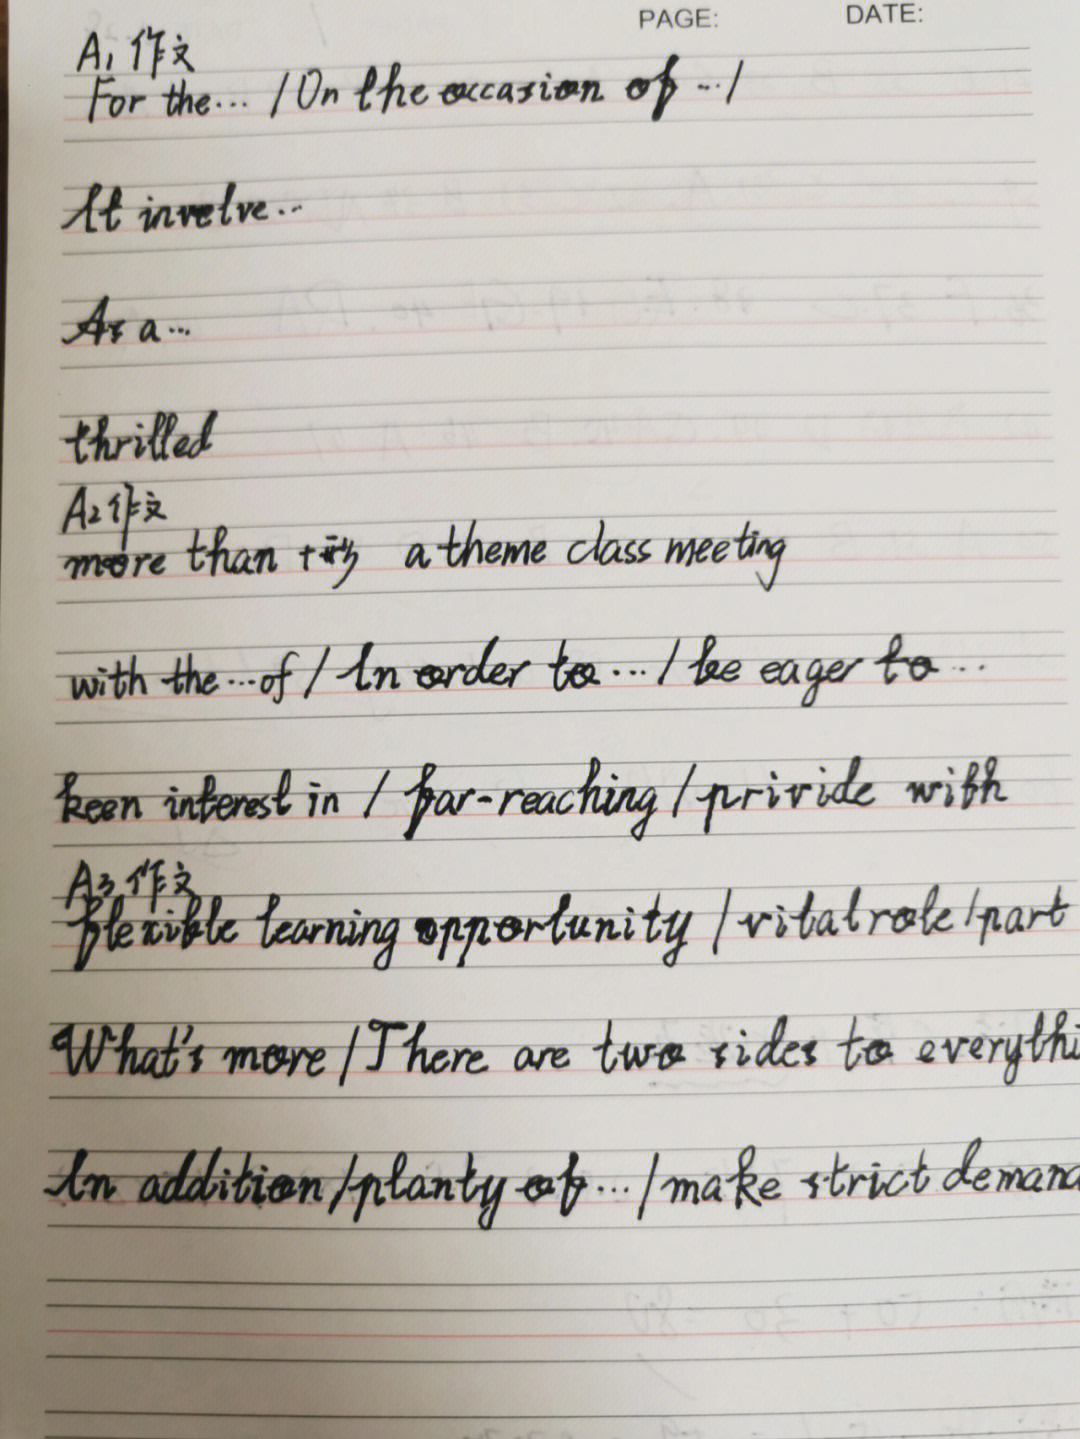 PAGE: DATE:
A1 作文
For the... / On the occasion of .../
It involve...
As a...
thrilled
A2 作文
more than + a theme class meeting
with the...of / In order to... / be eager to...
keen interest in / far-reaching / privide with
A3 作文
flexible learning opportunity / vital role / part
What's more / There are two sides to everythi
In addition / planty of... / make strict deman